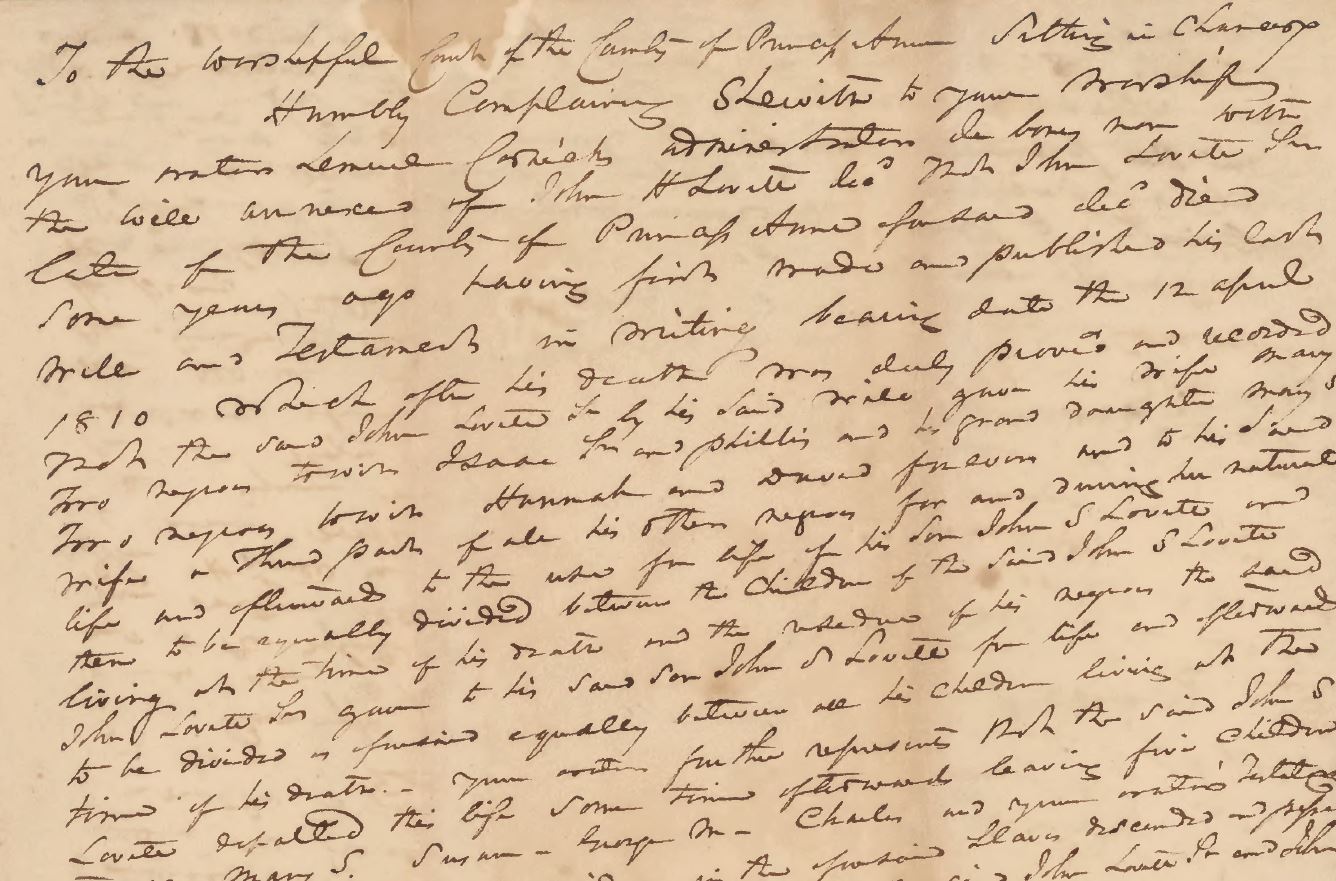 To the worshipfull Court of the County of Princess Anne Sitting in Chancery
Humbly Complaining Sheweth to your Worships
your orator Lemuel Cornick administrator de bonis non with
the will annexed of John H Lovett decd that John Lovett Snr
late of the County of Princess Anne foresaid decd died
Some years ago having first made and published his last
will and Testament in writing bearing date the 12 april
1810 which after his death was duly proved and recorded
that the said John Lovett Snr by his said will gave his wife Mary
Two negroes towit Isaac Snr and phillis and his grand daughter Mary S
Two negroes towit Hannah and David forever and to his said
wife a Third part of all his other negroes for and during her natural
life and afterward to the use for life of his son John S Lovett and
then to be equally divided between the Children of the said John S Lovett
living at the time of his death and the residue of his negroes the said
John Lovett Snr gave to his said son John S Lovett for life and afterward
to be divided as aforesaid equally between all his children living at the
time of his death. - your orator further represents that the said John S
Lovett departed this life some time afterwards leaving five children
Mary S. Susan - George M - Charles and your orators Testator
in the aforesaid slaves descended and
John Lovett Sr and John